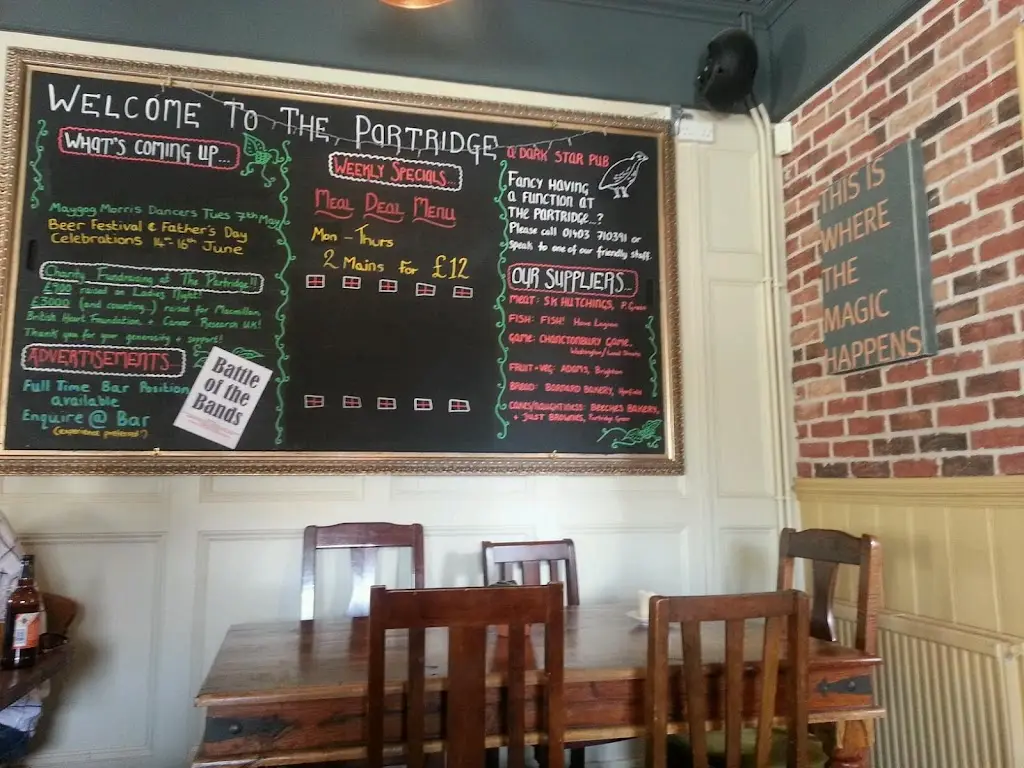 WELCOME TO THE PARTRIDGE
WHAT'S COMING UP...
Maygog Morris Dancers Tues 7th May
Beer Festival & Father's Day
Celebrations 14th-16th June
Charity Fundraising at The Partridge!!
£900 raised on Ladies Night!
£3000 (and counting..) raised for Macmillan,
British Heart Foundation + Cancer Research UK!
Thank you for your generosity + support!
ADVERTISEMENTS...
Full Time Bar Position
available
Enquire @ Bar
(experience preferred!)
Battle
of the
Bands
WEEKLY SPECIALS...
MEAL DEAL MENU
Mon - Thurs
2 Mains for £12
A DARK STAR PUB
FANCY HAVING
A FUNCTION AT
THE PARTRIDGE..?
Please call 01403 710391 or
speak to one of our friendly staff.
OUR SUPPLIERS...
MEAT: SK HUTCHINGS, P. Green
FISH: FISH!
GAME: CHANCTONBURY GAME,
FRUIT + VEG: ADAMS, Brighton
BREAD: BARNARD BAKERY,
CAKES/NAUGHTINESS: BEECHES BAKERY,
+ JUST BROWNIES, Partridge Green
THIS IS
WHERE
THE
MAGIC
HAPPENS